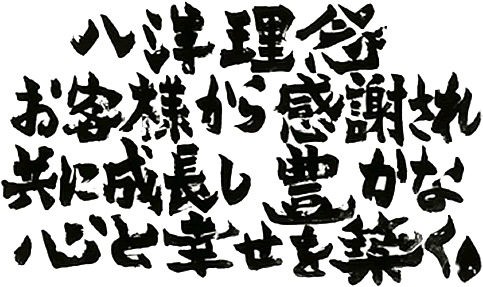 八洋理念
お客様から感謝され
共に成長し豊かな
心と幸せを築く。